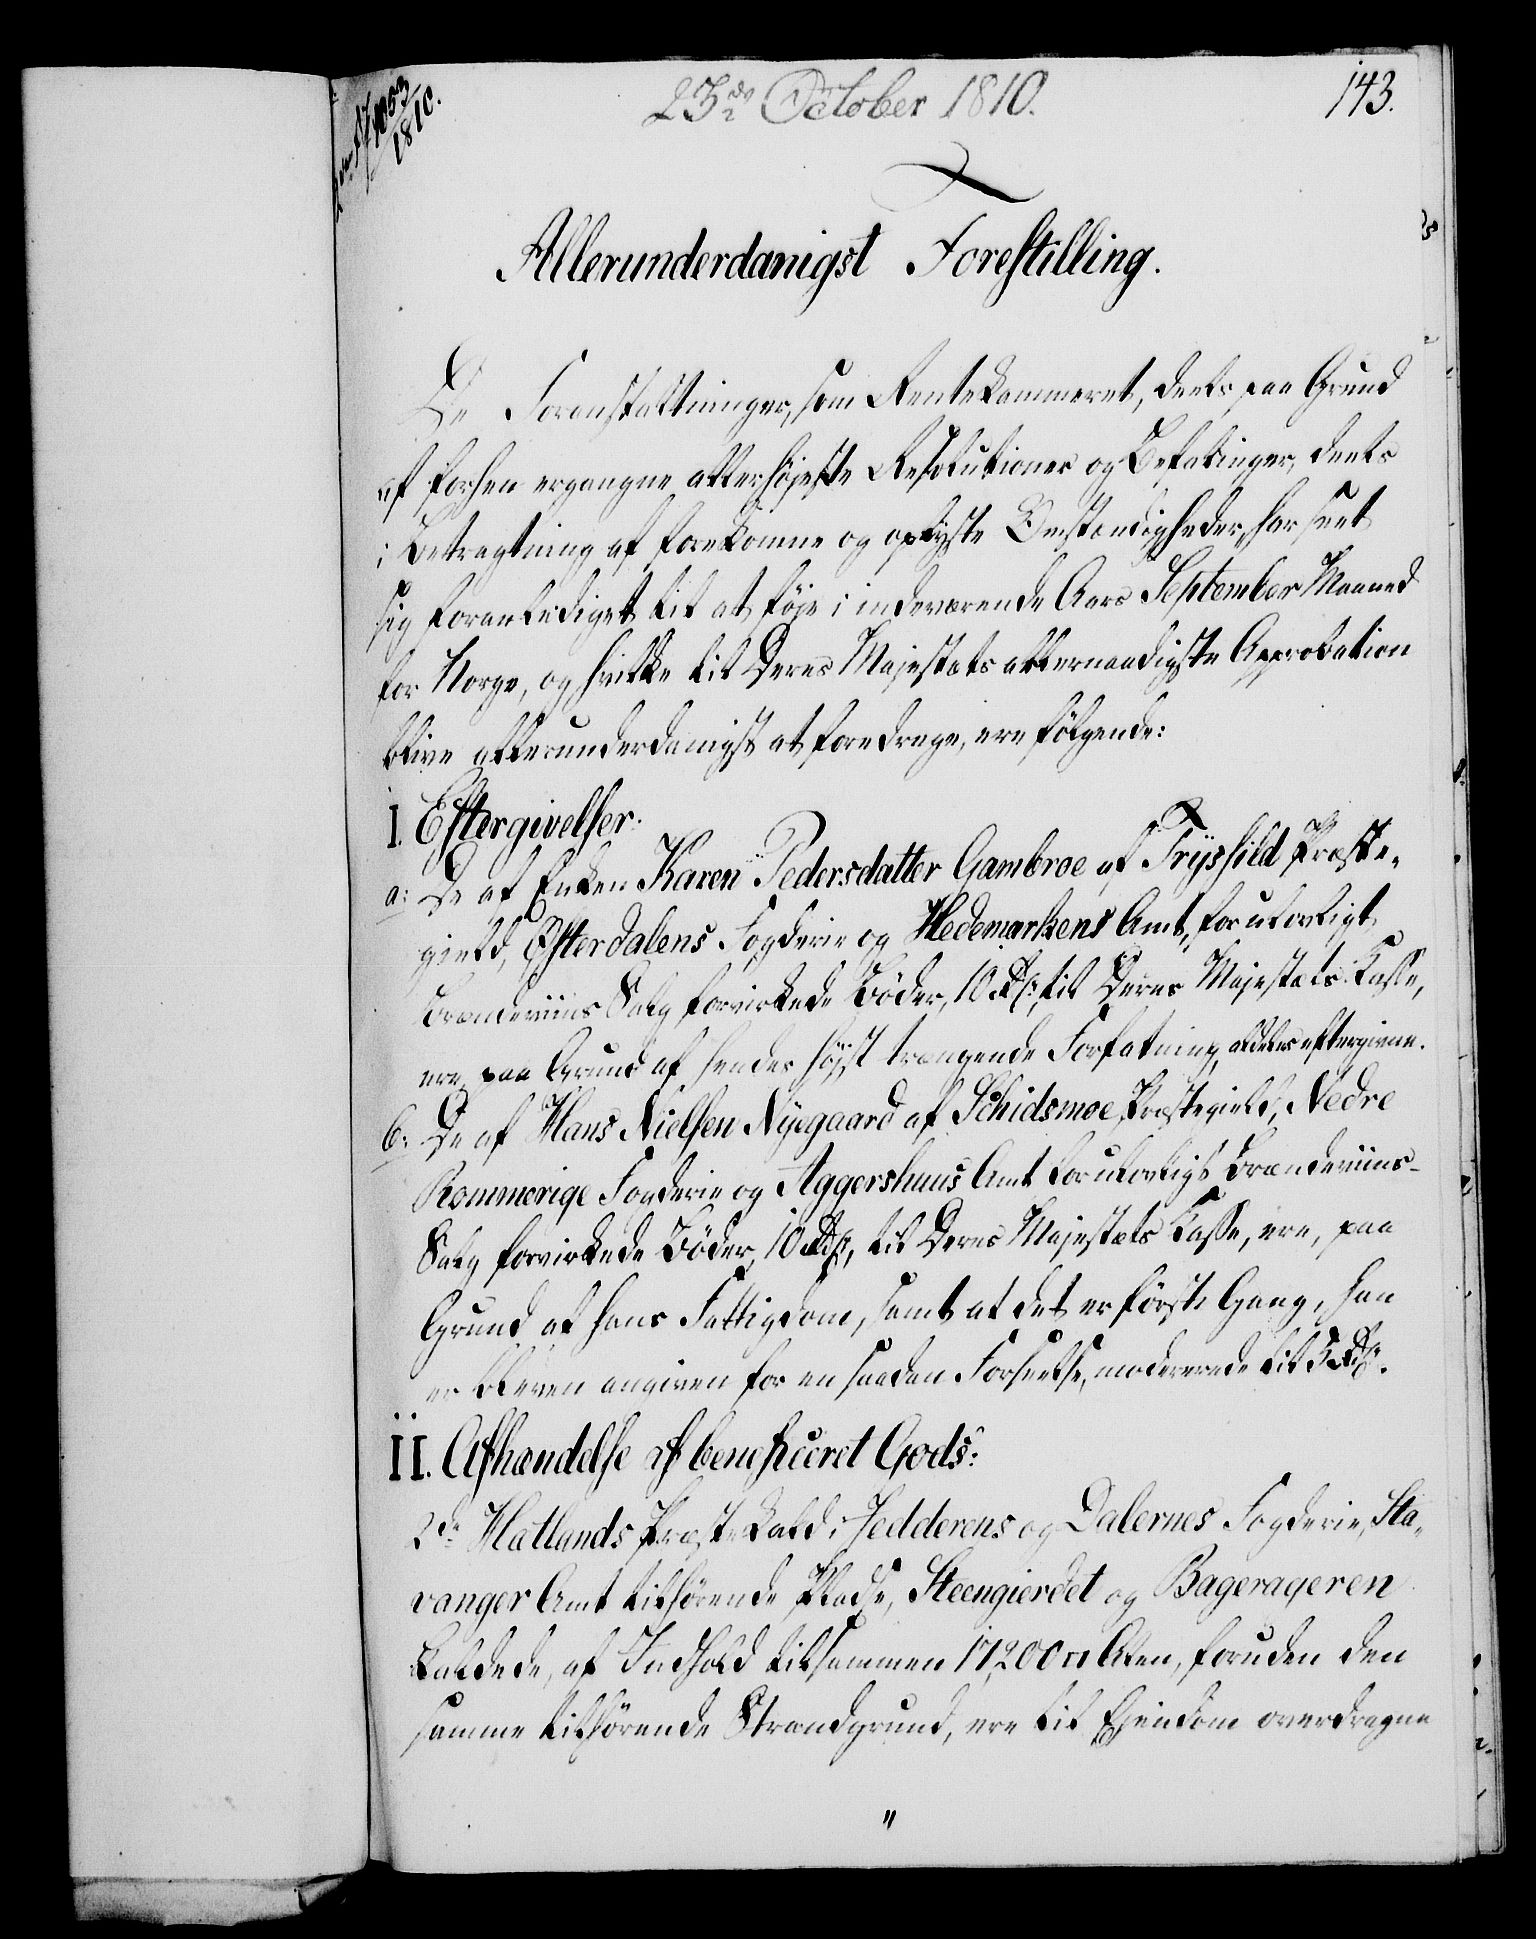 1053
1810.
23de October 1810.
143.
Allerunderdanigst Forestilling.
De Foranstaltninger, som Rentekammeret, deels paa Grund
af forhen ergangne allerhøjeste Resolutioner og Befalinger, deels
i Betragtning af forekomne og oplyste Omstændigheder, har seet
sig foranlediget til at føje i indeværende Aars September Maaned
for Norge, og hvilke til Deres Majestæts allernaadigste Approbation
blive allerunderdanigst at foredrage, ere følgende:
I. Eftergivelser:
a: De af Enken Karen Pedersdatter Gambroe af Trysild Præste-
gield, Østerdalens Fogderie og Hedemarkens Amt, for ulovligt
Brændeviins Salg forvirkede Bøder, 10 Rd, til Deres Majestæts Kasse,
ere paa Grund af hendes høyst trængende Forfatning, aldeles eftergivne.
b: De af Hans Nielsen Nyegaard af Schidsmoe Præstegield, Nedre
Rommerige Fogderie og Aggershuus Amt for ulovligt Brændeviins-
Salg forvirkede Bøder, 10 Rd, til Deres Majestæts Kasse, ere, paa
Grund af hans Fattigdom, samt at det er første Gang, han
er bleven angiven for en saadan Forseelse, modererede til 5 Rd.
II. Afhændelse af beneficeret Gods:
2de Hatlands Præstekald i Jedderens og Dalernes Fogderie, Sta-
vanger Amt tilhørende Pladse, Steengierdet og Bagerageren
kaldede, af Indhold tilsammen 17,200 □ Alen, foruden den
samme tilhørende Strandgrund, ere til Ejendom overdragne
"